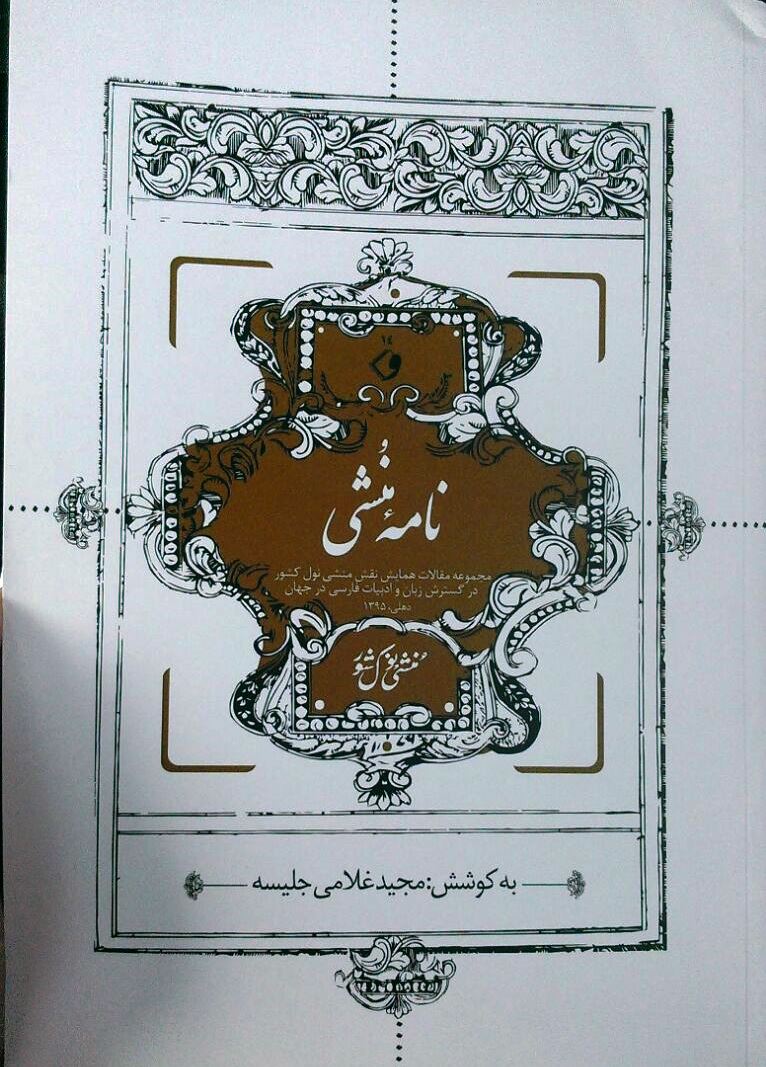 ۱٤
نامهٔ مُنشی
مجموعه مقالات همایش نقش منشی نول کشور
در گسترش زبان و ادبیات فارسی در جهان
دهلی، ۱۳۹۵
مُنشی نول کشور
به کوشش: مجید غلامی جلیسه